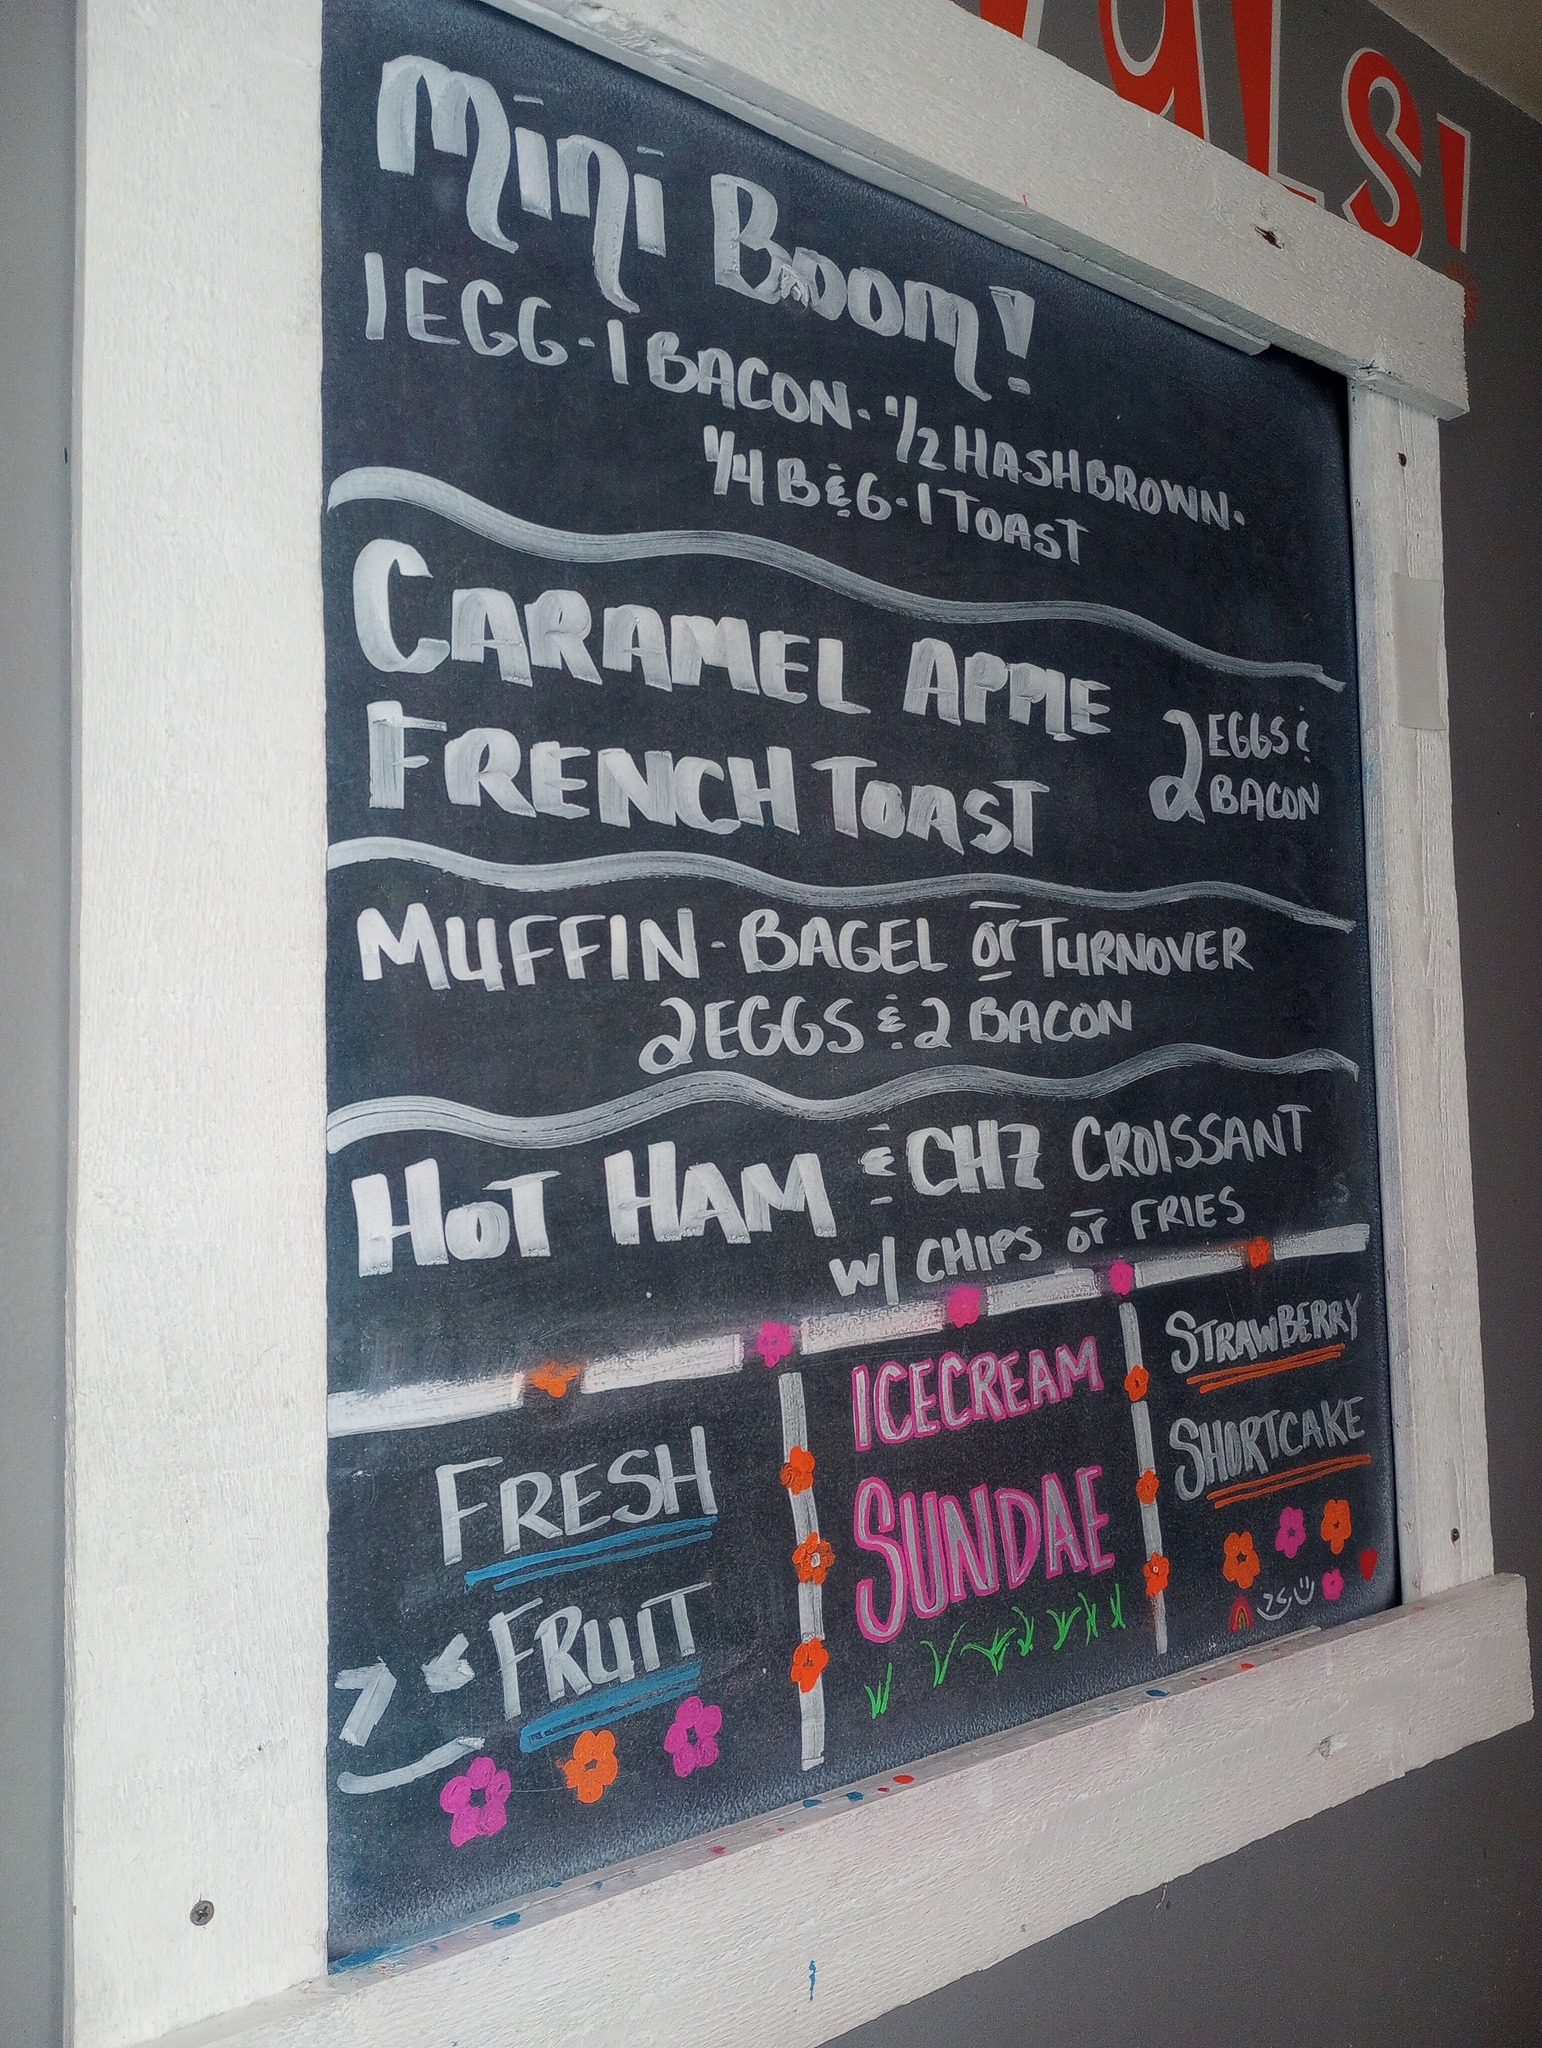 Mini Boom!
1 EGG - 1 BACON - 1/2 HASHBROWN -
1/4 B & G - 1 TOAST
CARAMEL APPLE
FRENCH TOAST
2 EGGS &
BACON
MUFFIN - BAGEL or TURNOVER
2 EGGS & 2 BACON
HOT HAM & CHZ CROISSANT
W/ CHIPS or FRIES
FRESH
FRUIT
ICECREAM
SUNDAE
STRAWBERRY
SHORTCAKE